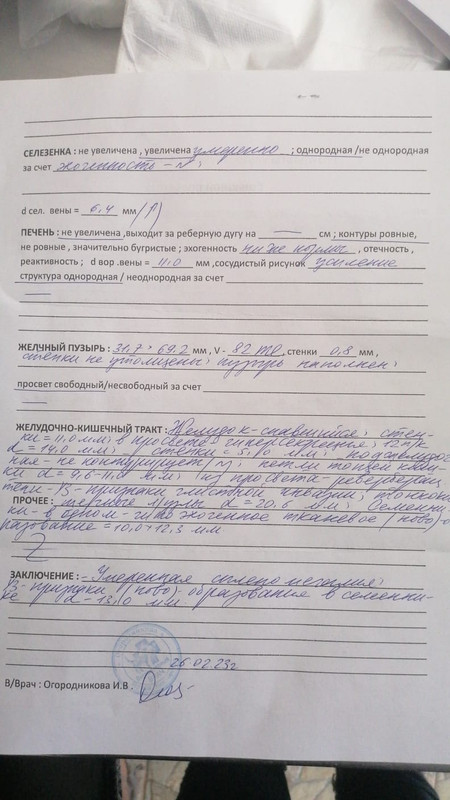 СЕЛЕЗЕНКА : не увеличена , увеличена умеренно ; однородная /не однородная
за счет эхогенность - N ;
d сел. вены = 6,4 мм /А)
ПЕЧЕНЬ : не увеличена ,выходит за реберную дугу на — см ; контуры ровные,
не ровные , значительно бугристые ; эхогенность ниже нормы , отечность ,
реактивность ; d вор .вены = 11.0 мм ,сосудистый рисунок усиление
структура однородная / неоднородная за счет
—
ЖЕЛЧНЫЙ ПУЗЫРЬ : 31,7 × 69.2 мм , V - 82 ml , стенки 0,8 мм ,
стенки не утолщены; пузырь наполнен;
просвет свободный/несвободный за счет
—
ЖЕЛУДОЧНО-КИШЕЧНЫЙ ТРАКТ : Желудок - спавшийся; стен-
ки = 11.0 мм; в просвете - гиперсекреция; 12 п/к
d = 14.0 мм; стенки = 5,10 мм; поджелудоч
ная - не контурирует / N ; петли тонкой киш-
ки d = 9,6-11.0 мм; из просвета - реверберац
УЗ - признаки глистной инвазии;
ПРОЧЕЕ : d = 20.6 мм; Семенни
ки - в одном - гипоэхогенное тканевое (ново) о
разование = 10,0 × 12,3 мм
ЗАКЛЮЧЕНИЕ : - Умеренная спленомегалия;
УЗ - признаки (ново) - образования в семенни-
ке d - 13,0 мм
26.02 23г
В/Врач : Огородникова И.В